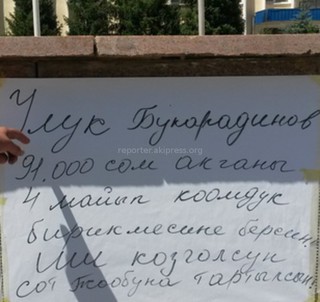 Улук Букарадинов
reporter.akipress.org
91.000 сом акганы
4 майып коомдук
бирикмесине берсин
Иш козголсун
сот жообуна тартылсын